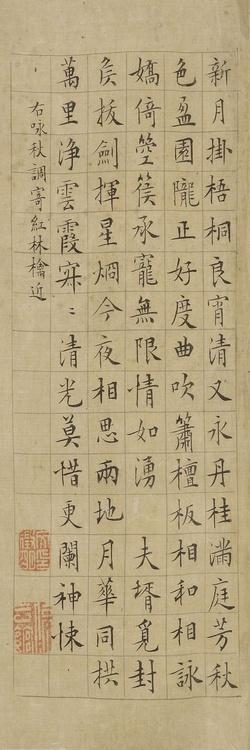 新月掛梧桐良宵清又永丹桂滿庭芳秋
色盈園隴正好度曲吹簫檀板相和相詠
嬌倚箜篌承寵無限情如湧 夫壻覓封
矦拔劍揮星烱今夜相思兩地月華同拱
萬里浄雲霞寂〻清光莫惜更闌神悚
右咏秋調寄紅林檎近